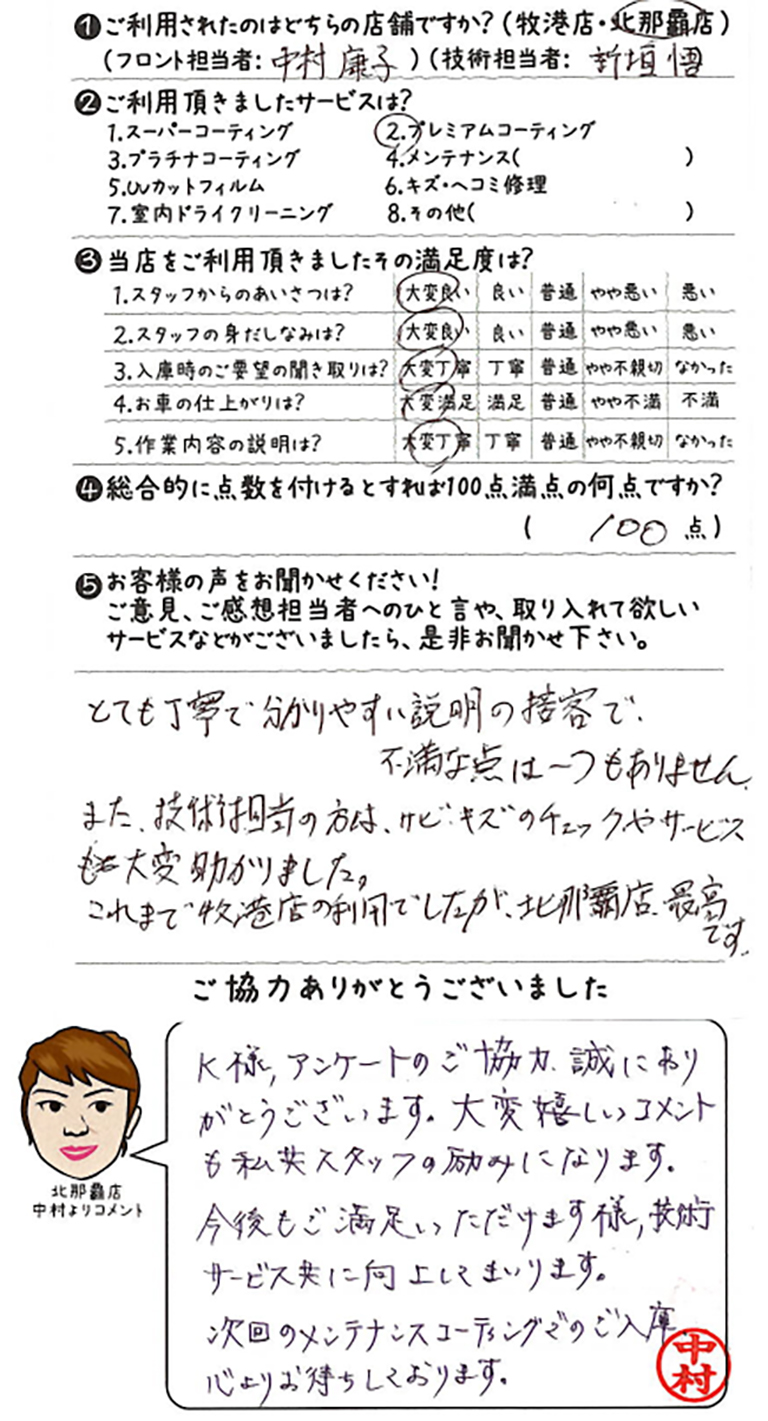 ❶ご利用されたのはどちらの店舗ですか?(牧港店・北那覇店)
(フロント担当者: 中村 康子 )(技術担当者: 新垣 悟
❷ご利用頂きましたサービスは?
1.スーパーコーティング 2.プレミアムコーティング
3.プラチナコーティング 4.メンテナンス( )
5.UVカットフィルム 6.キズ・ヘコミ修理
7.室内ドライクリーニング 8.その他( )
❸当店をご利用頂きましたその満足度は?
1.スタッフからのあいさつは? 大変良い 良い 普通 やや悪い 悪い
2.スタッフの身だしなみは? 大変良い 良い 普通 やや悪い 悪い
3.入庫時のご要望の聞き取りは? 大変丁寧 丁寧 普通 やや不親切 なかった
4.お車の仕上がりは? 大変満足 満足 普通 やや不満 不満
5.作業内容の説明は? 大変丁寧 丁寧 普通 やや不親切 なかった
❹総合的に点数を付けるとすれば100点満点の何点ですか?
( 100 点)
❺お客様の声をお聞かせください!
ご意見、ご感想担当者へのひと言や、取り入れて欲しい
サービスなどがございましたら、是非お聞かせ下さい。
とても丁寧で分かりやすい説明の接客で、
不満な点は一つもありません
また、技術担当の方は、サビ・キズのチェックやサービス
も大変助かりました。
これまで牧港店の利用でしたが、北那覇店、最高
です。
ご協力ありがとうございました
K様,アンケートのご協力、誠にあり
がとうございます。大変嬉しいコメント
も私共スタッフの励みになります。
今後もご満足いただけます様,技術
サービス共に向上してまいります。
次回のメンテナンスコーティングでのご入庫
心よりお待ちしております。
中村
北那覇店
中村よりコメント